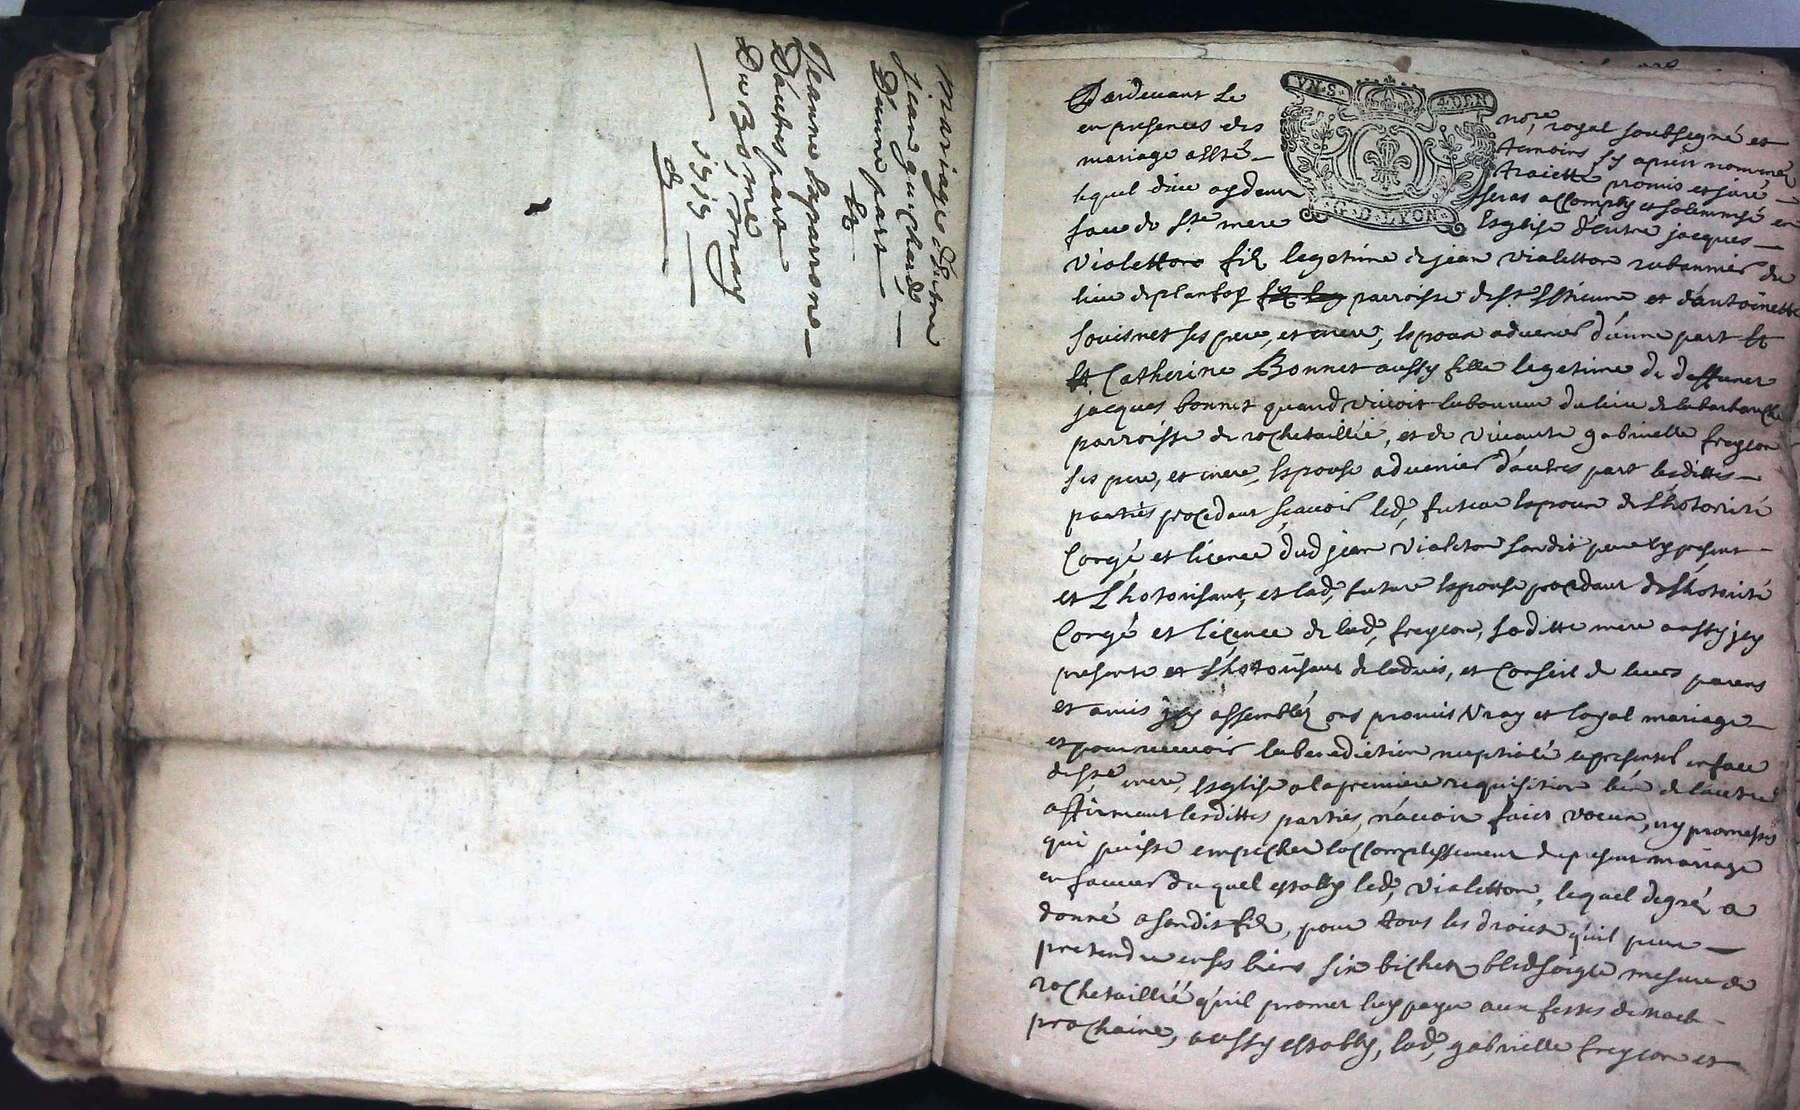 Mariage d'Entre
Jean guichard
D'une part
Et
Jeanne
D'autre part
Du 23me may
1715
Pardevant le nore royal soubsigné et
en presences des temoins sy apres nommes
mariage a esté traitté promis et juré
lequel dieu aydant seras accomply et solemnisé en
face de Ste mere Esglise d'entre jacques
Vialetton filz legetime de jean Vialetton rubannier du
lieu de planfoy parroisse de St Estienne et d'antoinette
ses pere, et mere, Espoux advenir d'une part Et
Et Catherine Bonnet aussy fille legetime de deffunct
jacques bonnet quand vivoit laboureur du lieu de
parroisse de rochetaillié, et de vivante gabrielle freycon
ses pere, et mere, Espouse advenir d'autre part lesdittes
parties procedant scavoir led, futeur Espoux de l'hotorité
Congé et licence dud jean Vialeton sondit pere sy present
et L'hotorisant, et lad, future Espouse procedant de l'hotorité
Congé et licence de lad, freycon, saditte mere aussy jcy
presente et l'hotorisant de ladvis, et Conseil de leurs parens
et amis jcy assemblés ont promis Vray et loyal mariage
et pour recevoir la benediction nuptialé se presenter en face
de Ste mere Esglise a la premiere requisition de l'autre
affirmant lesdittes parties, n'avoir faict voeux, ny promesses
qui puisse empecher l'accomplissement du present mariage
en faveur duquel estably led, Vialetton, lequel de gré a
donné a sondit filz, pour tous les droits qu'il peux
pretendre en ses biens six bichetz bled seigle mesure de
rochetaillié qu'il promet luy payer aux festes de noel
prochaine, aussy estably, lad, gabrielle freycon et
YN·S· 4·DEN
·G·D·LYON·